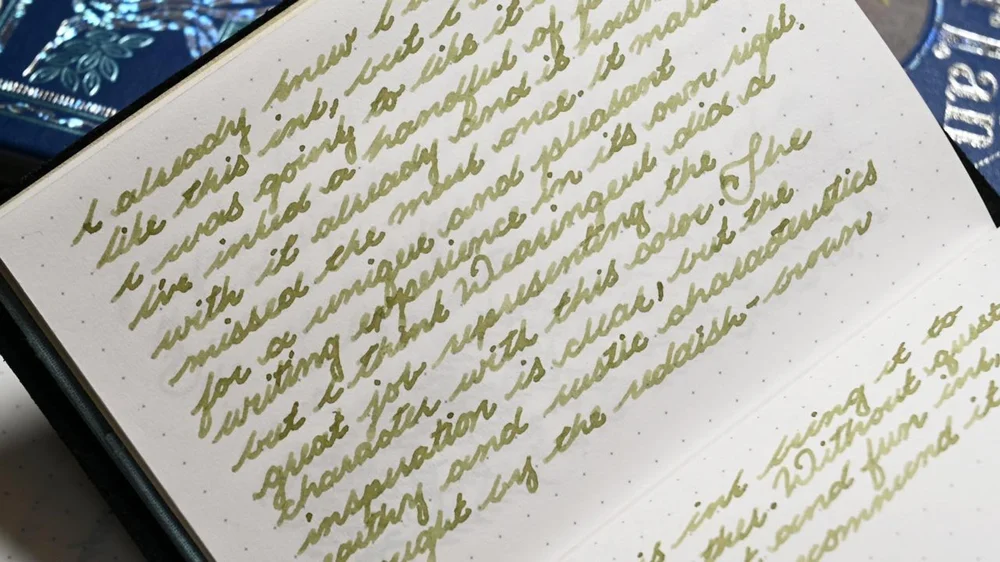 I already knew I
like this ink, but I
I was going to like it
I've inked a handful of
with it already and it hasn't
missed the mark once. It
for a unique and pleasant
writing experience in its own right.
but I think Wearingeul did a
great job representing the
character with this color. The
inspiration is clear, but the
earthy and rustic characteristics
by the reddish-brown
ink using it to
Without
and fun ink
recommend it